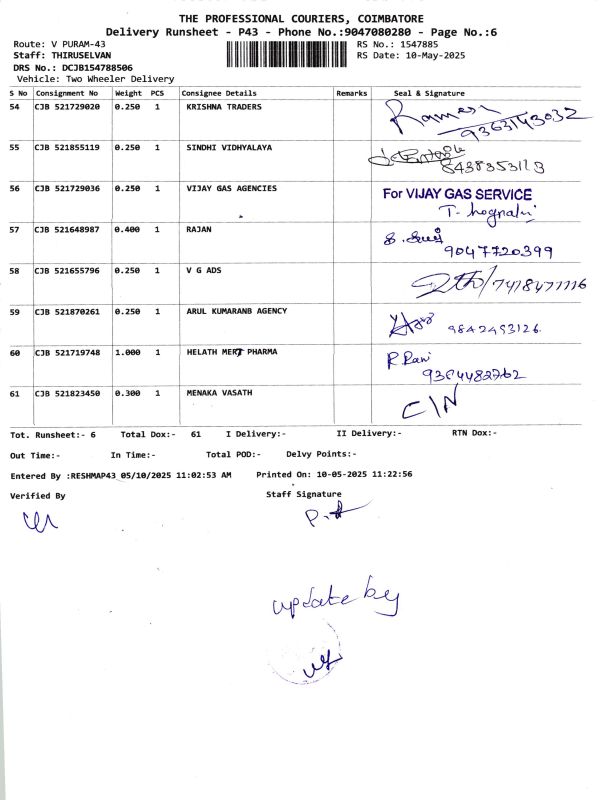 THE PROFESSIONAL COURIERS, COIMBATORE
Delivery Runsheet - P43 - Phone No.:9047080280 - Page No.:6
Route: V PURAM-43 RS No.: 1547885
Staff: THIRUSELVAN RS Date: 10-May-2025
DRS No.: DCJB154788506
Vehicle: Two Wheeler Delivery
S No Consignment No Weight PCS Consignee Details Remarks Seal & Signature
54 CJB 521729020 0.250 1 KRISHNA TRADERS Ramesh
9363143032
55 CJB 521855119 0.250 1 SINDHI VIDHYALAYA
56 CJB 521729036 0.250 1 VIJAY GAS AGENCIES For VIJAY GAS SERVICE
57 CJB 521648987 0.400 1 RAJAN
9047720399
58 CJB 521655796 0.250 1 V G ADS
59 CJB 521870261 0.250 1 ARUL KUMARANB AGENCY
9842493126
60 CJB 521719748 1.000 1 HELATH MERT PHARMA R Rani
61 CJB 521823450 0.300 1 MENAKA VASATH C/N
Tot. Runsheet:- 6 Total Dox:- 61 I Delivery:- II Delivery:- RTN Dox:-
Out Time:- In Time:- Total POD:- Delvy Points:-
Entered By :RESHMAP43 05/10/2025 11:02:53 AM Printed On: 10-05-2025 11:22:56
Verified By Staff Signature
update by